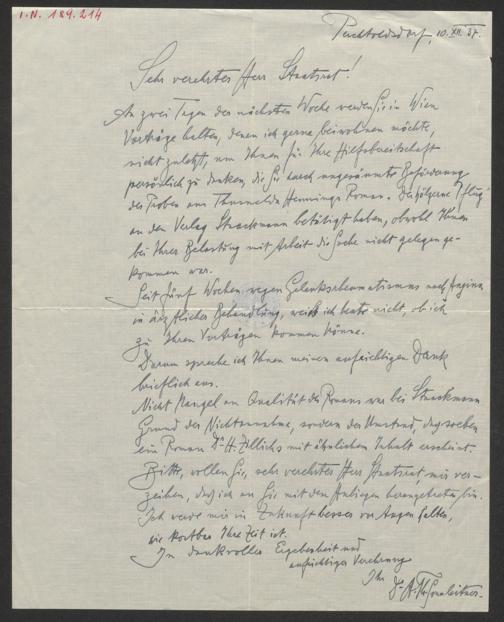 I.N. 189.214
Perchtoldsdorf, 10. XII. 37.
Sehr verehrter Herr Staatsrat!
An zwei Tagen der nächsten Woche werden Sie in Wien
Vorträge halten, denen ich gerne beiwohnen möchte,
nicht zuletzt, um Ihnen für Ihre Hilfsbereitschaft
persönlich zu danken, die Sie durch ungesäumte Beförderung
der Proben aus Thusnelda Hennings Roman „Der hölzerne Pflug"
an den Verlag Staackmann betätigt haben, obwohl Ihnen
bei Ihrer Belastung mit Arbeit die Sache nicht gelegen ge-
kommen war.
Seit fünf Wochen wegen Gelenksrheumatismus nach Angina
in ärztlicher Behandlung, weiß ich heute nicht, ob ich
zu Ihren Vorträgen kommen könne.
Darum spreche ich Ihnen meinen aufrichtigen Dank
brieflich aus.
Nicht Mangel an Qualität des Romans war bei Staackmann
Grund der Nichtannahme, sondern der Umstand, dass soeben
ein Roman Dr. H. Zillichs mit ähnlichem Inhalt erscheint.
Bitte, wollen Sie, sehr verehrter Herr Staatsrat, mir ver-
zeihen, daß ich an Sie mit dem Anliegen herangetreten bin.
Ich werde mir in Zukunft besser vor Augen halten,
wie kostbar Ihre Zeit ist.
In dankvoller Ergebenheit und
aufrichtiger Verehrung
Ihr
Dr. A. Th. Sonnleitner.